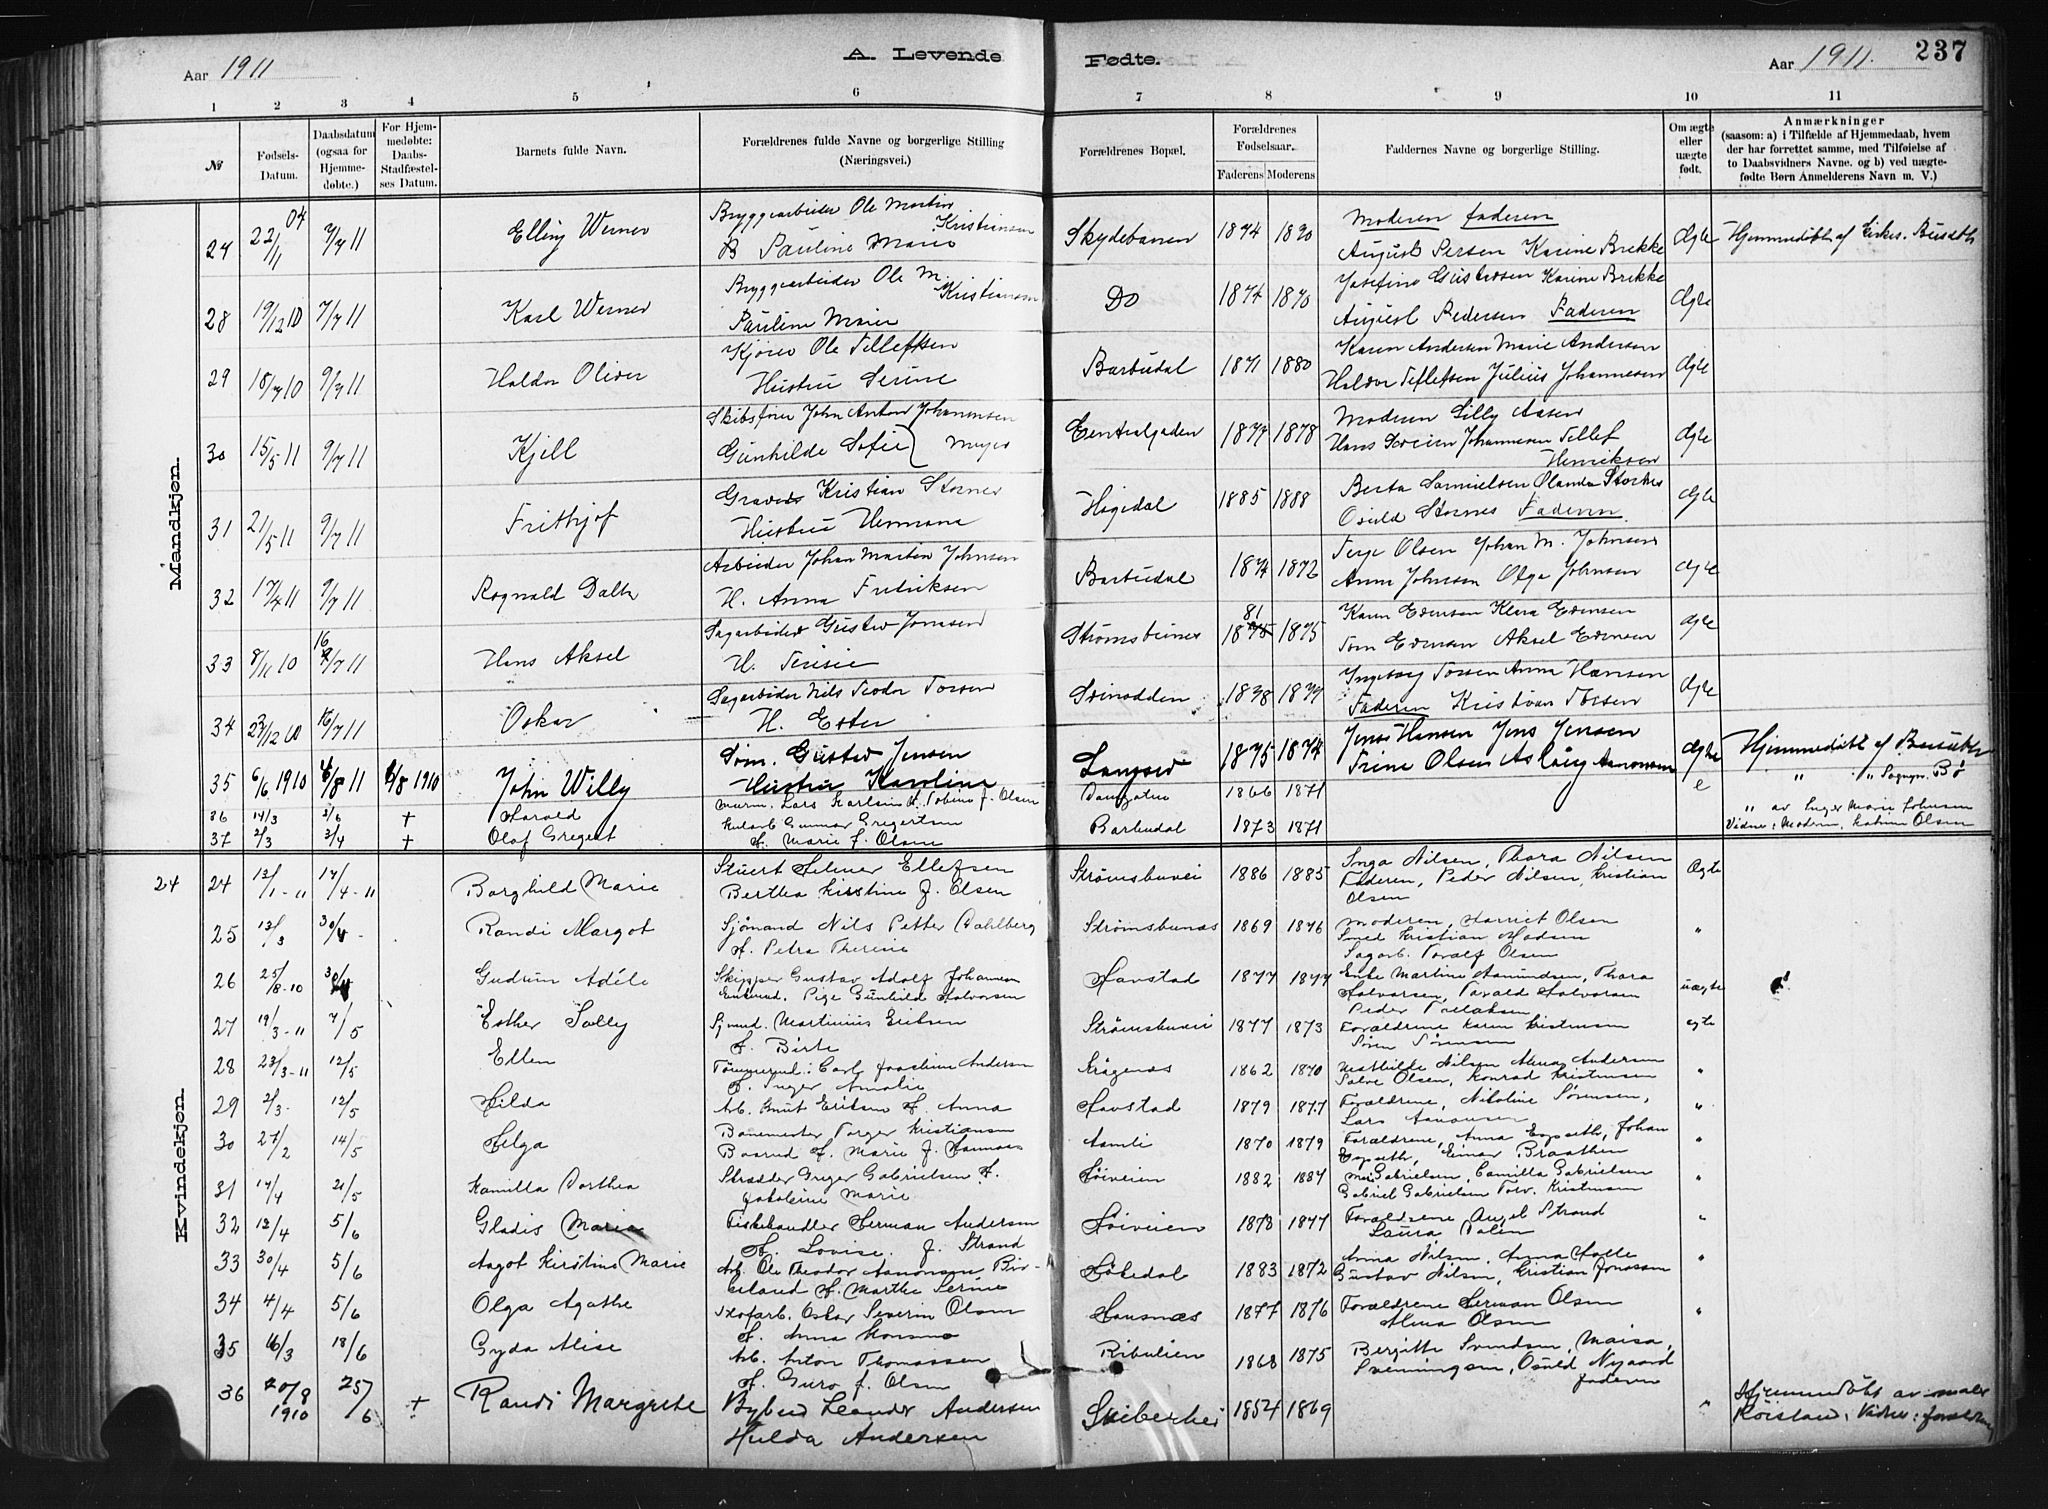 Aar 1911
A. Levende
Fødte.
Aar 1911.
237
1 2 3 4 5 6 7 8 9 10 11
№
Fødsels-Datum.
Daabsdatum (ogsaa for Hjemme-døbte.)
For Hjem-medøbte: Daabs-Stadfæstel-ses Datum.
Barnets fulde Navn.
Forældrenes fulde Navne og borgerlige Stilling (Næringsvei.)
Forældrenes Bopæl.
Forældrenes Fødselsaar.
Faderens Moderens
Faddernes Navne og borgerlige Stilling.
Om ægte eller uægte født.
Anmærkninger
(saasom: a) i Tilfælde af Hjemmedaab, hvem der har forrettet samme, med Tilføielse af to Daabsvidners Navne. og b) ved uægte-fødte Børn Anmelderens Navn m. V.)
Mandkjøn.
24 22/11 04 7/7 11 Elling Werner Bryggearbeider Ole Martin Kristiansen
Pauline Marie Skydebanen 1874 1870 Moderen Faderen
August Persen Karine Brekke Ægte Hjemmedöbt af
28 19/12 10 7/7 11 Karl Werner Bryggearbeider Ole M. Kristiansen
Pauline Marie Do 1874 1870 Josefine Gustavsen Karine Brekke
August Pedersen Faderen Ægte
29 18/7 10 9/7 11 Haldor Oliver Kjører Ole Tellefsen
Hustru Serine Barbudal 1871 1880 Karen Andersen Marie Andersen
Haldor Tellefsen Julius Johannesen Ægte
30 15/5 11 9/7 11 Kjell Skibsfører John Anton Johannesen
Gunhilde Sofie Meyer Centralgaden 1877 1878 Moderen Lilly Aasen
Hans Johannesen Tellef
Henriksen Ægte
31 21/5 11 9/7 11 Frithjof Kristian Stornes
Hustru Hermana Høgedal 1885 1888 Berta Samuelsen Olanda Stornes
Osuld Stornes Faderen Ægte
32 17/4 11 9/7 11 Rognald Arbeider Johan Martin Johnsen
H. Anna Fredriksen Barbudal 1874 1872 Terje Olsen Johan M. Johnsen
Anna Johnsen Olga Johnsen Ægte
33 8/11 10 16/7 11 Hans Aksel Sagarbeider Gustav Jonassen
H. Terisie Strømsbunes 81 1875 1875 Karen Evensen Klara Evensen
Tom Evensen Aksel Evensen Ægte
34 23/12 10 16/7 11 Oskar Sagarbeider Nils Teodor Torsen
H. Ester Svinodden 1878 1879 Ingeborg Torsen Anna Hansen
Faderen Kristian Torsen Ægte
35 6/6 1910 6/8 11 6/8 1910 John Willy Søm. Gustav Jensen
Hustru Karoline Langsev 1875 1874 Jens Hansen Jens Jensen
Trine Olsen Aslaug Aanonsen Ægte Hjemmedöbt af
36 14/3 5/6 + Harald Murm. Lars Karlsen H. Tobine f. Olsen 1866 1871 e " " Sognepr. Bø
37 2/3 2/4 + Olaf Gregert Gunnar Gregertsen
H. Marie f. Olsen Barbudal 1873 1871 " av Inger Marie Johnsen
Vidne: Modern, Katrine Olsen
Kvindekjøn.
24 24 12/1-11 17/4-11 Borghild Marie Stuert Helmer Ellefsen
Bertha Kirstine f. Olsen Strømsbuvei 1886 1885 Inga Nilsen, Thora Nilsen
Faderen, Peder Nilsen, Kristian
Olsen Ægte
25 13/3 30/4 Randi Margot Sjømand Nils Petter Dahlberg
H. Petra Therine Strømsbunæs 1869 1876 Moderen, Harriet Olsen
Smed Kristian Madsen
Sagarb. Toralf Olsen "
26 25/8-10 30/4 Gudrun Adéle Skipper Gustav Adolf Johannesen
Enkemd. Pige Gunhild Halvorsen Havstad 1877 1877 Enke Martine Aamundsen, Thara
Halvorsen, Torald Halvorsen
Peder Tellaksen uægte
27 19/3-11 7/5 Esther Solly Sjømd. Martinius Eriksen
H. Birte Strømsbuvei 1877 1873 Forældrene Karen Kristensen
Søren Sørensen ægte
28 23/3-11 12/5 Ellen Tømmermd: Carl Joachim Andersen
H. Inger Amalie Krøgenæs 1862 1870 Mathilde Nilsen Alma Andersen
Salve Olsen, Konrad Kristensen "
29 2/3 12/5 Hilda Arb. Knut Eriksen H. Anna Havstad 1879 1877 Forældrene, Nikoline Sørensen,
Lars Aanonsen "
30 27/2 14/5 Helga Banemester Torger Kristiansen
Baarud H. Marie f. Hannaas Aamli 1870 1879 Forældrene, Anna Espseth, Johan
Espseth, Einar Braathen "
31 17/4 21/5 Kamilla Dorthea Greger Gabrielsen H.
Jakobine Marie Høiveien 1882 1884 Gabrielsen, Camilla Gabrielsen
Gabriel Gabrielsen Torv. Kristensen "
32 12/4 5/6 Gladis Maria Fiskehandler Herman Andersen
H. Lovise f. Strand Høiveien 1878 1877 Forældrene Angel Strand
Laura Dalen "
33 30/4 5/6 Aagot Kirstine Marie Arb. Ole Theodor Aanonsen Bir-
keland H. Marthe Serine Løkedal 1883 1872 Anna Nilsen, Anna Holte
Gustav Nilsen, Kristian Jonassen "
34 4/4 5/6 Olga Agathe Skofarb. Oskar Severin Olsen
H. Anna Hansnæs 1877 1876 Forældrene Herman Olsen
Alma Olsen "
35 16/3 18/6 Gyda Alise Arb. Anton Thomassen
H. Guro f. Olsen Ribulien 1868 1875 Bergitte Svendsen, Maisa,
Svenningsen, Osuld Nygaard
faderen
36 20/8 1910 25/6 + Randi Margrete Bybud Leander Andersen
Hulda Andersen Skiberhei 1854 1869 " Hjemmedöbt av maler
Röisland, Vidne: forældrene